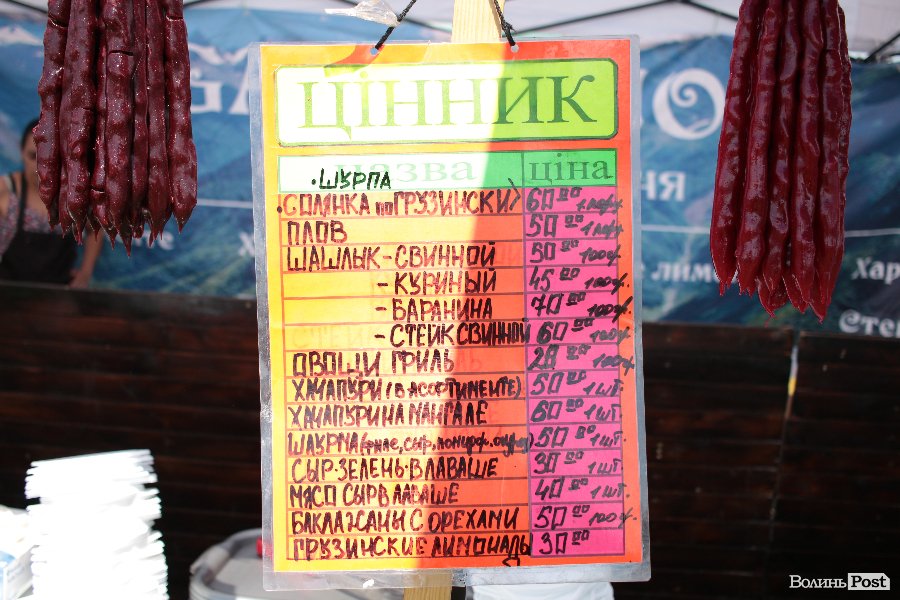 ЦІННИК
назва ціна
·ШУРПА
·СОЛЯНКА по ГРУЗИНСКИ 60.00 1 порц.
ПЛОВ 50.00 1 порц.
ШАШЛЫК-СВИННОЙ 50.00 100г.
-КУРИНЫЙ 45.00 100г.
-БАРАНИНА 70.00 100г.
-СТЕЙК СВИННОЙ 60.00 100г.
ОВОЩИ ГРИЛЬ 20.00 100г.
ХАЧАПУРИ (В АССОРТИМЕНТЕ) 50.00 1 шт.
ХАЧАПУРИ НА МАНГАЛЕ 60.00 1 шт.
ШАУРМА (филе, сыр, помидор, огурец) 50.00 1 шт.
СЫР-ЗЕЛЕНЬ-В ЛАВАШЕ 30.00 1 шт.
МЯСО СЫР В ЛАВАШЕ 40.00 1 шт.
БАКЛАЖАНЫ С ОРЕХАМИ 50.00 100г.
ГРУЗИНСКИЕ ЛИМОНАДЫ 30.00
Хар
Сте
ВолиньPost